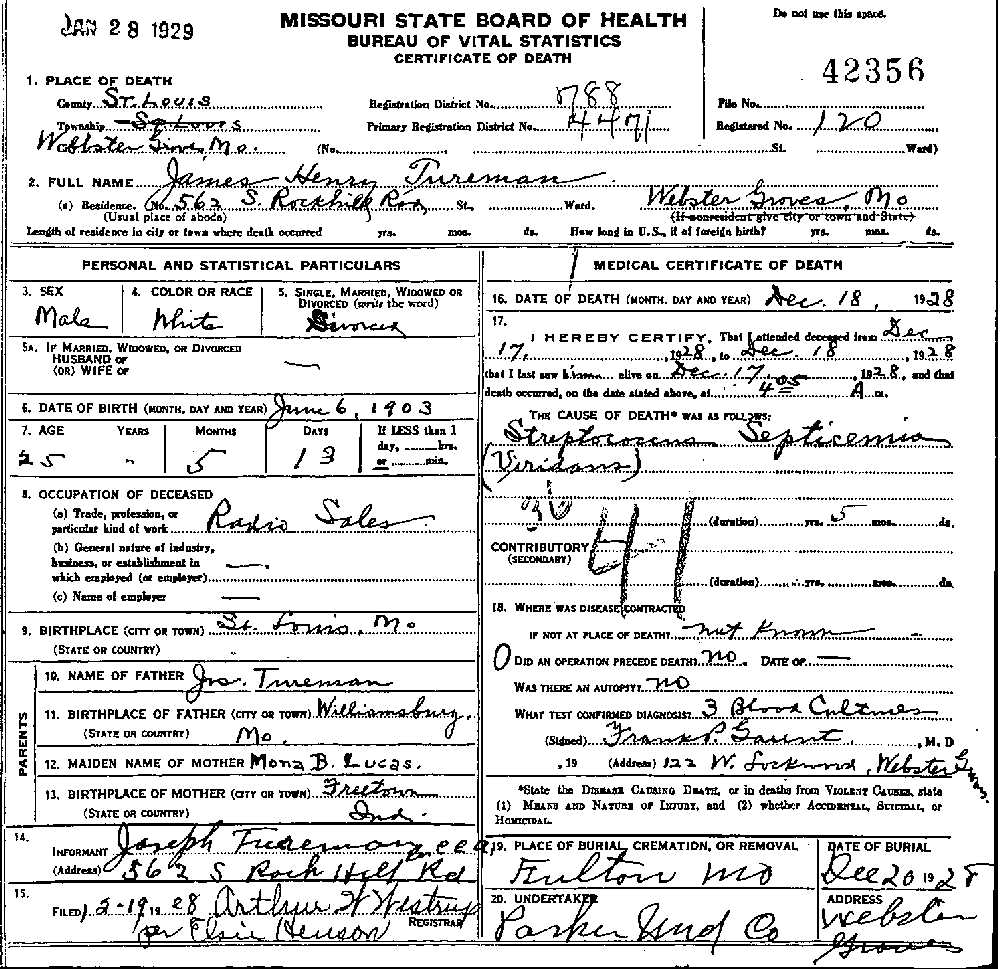 JAN 28 1929
MISSOURI STATE BOARD OF HEALTH
BUREAU OF VITAL STATISTICS
CERTIFICATE OF DEATH
Do not use this space.
42356
1. PLACE OF DEATH
County St. Louis Registration District No. 788 File No.
Township St Louis Primary Registration District No. 4471 Registered No. 120
City Webster Groves, Mo. (No. St. Ward)
2. FULL NAME James Henry Tureman
(a) Residence. No. 562 S. Rockhill Road St., Ward. Webster Groves, Mo
(Usual place of abode) (If nonresident give city or town and State)
Length of residence in city or town where death occurred yrs. mos. ds. How long in U.S., if of foreign birth? yrs. mos. ds.
PERSONAL AND STATISTICAL PARTICULARS
3. SEX Male
4. COLOR OR RACE White
5. SINGLE, MARRIED, WIDOWED OR DIVORCED (write the word) Divorced
5A. IF MARRIED, WIDOWED, OR DIVORCED
HUSBAND OF
(OR) WIFE OF —
6. DATE OF BIRTH (MONTH, DAY AND YEAR) June 6, 1903
7. AGE YEARS MONTHS DAYS If LESS than 1 day, hrs. or min.
25 " 5 13
8. OCCUPATION OF DECEASED
(a) Trade, profession, or particular kind of work Radio Sales
(b) General nature of industry, business, or establishment in which employed (or employer) —
(c) Name of employer —
9. BIRTHPLACE (CITY OR TOWN) St. Louis, Mo
(STATE OR COUNTRY)
PARENTS
10. NAME OF FATHER Jos. Tureman
11. BIRTHPLACE OF FATHER (CITY OR TOWN) Williamsburg,
(STATE OR COUNTRY) Mo.
12. MAIDEN NAME OF MOTHER Mona B. Lucas.
13. BIRTHPLACE OF MOTHER (CITY OR TOWN) Freetown
(STATE OR COUNTRY) Ind.
14.
INFORMANT Joseph Tureman
(Address) 562 S Rock Hill Rd
15.
FILED 12-19 1928 Arthur W Westrup
REGISTRAR
per Elsie Henson
MEDICAL CERTIFICATE OF DEATH
16. DATE OF DEATH (MONTH, DAY AND YEAR) Dec. 18, 1928
17.
I HEREBY CERTIFY, That I attended deceased from Dec
17, 1928, to Dec. 18, 1928
that I last saw him alive on Dec. 17, 1928, and that
death occurred, on the date stated above, at 4 05 A m.
THE CAUSE OF DEATH* WAS AS FOLLOWS:
Streptococcus Septicemia
(Viridans)
36
41
(duration) yrs. 5 mos. ds.
CONTRIBUTORY
(SECONDARY)
(duration) yrs. mos. ds.
18. WHERE WAS DISEASE CONTRACTED
IF NOT AT PLACE OF DEATH? not Known
0 DID AN OPERATION PRECEDE DEATH? no. DATE OF —
WAS THERE AN AUTOPSY? no
WHAT TEST CONFIRMED DIAGNOSIS? 3 Blood Cultures
(Signed) Frank P. , M. D
, 19 (Address) 122 W. Lockwood, Webster Groves.
*State the DISEASE CAUSING DEATH, or in deaths from VIOLENT CAUSES, state
(1) MEANS AND NATURE OF INJURY, and (2) whether ACCIDENTAL, SUICIDAL, or
HOMICIDAL.
19. PLACE OF BURIAL, CREMATION, OR REMOVAL DATE OF BURIAL
Fulton Mo Dec 20 1928
20. UNDERTAKER ADDRESS
Parker Und Co Webster Groves